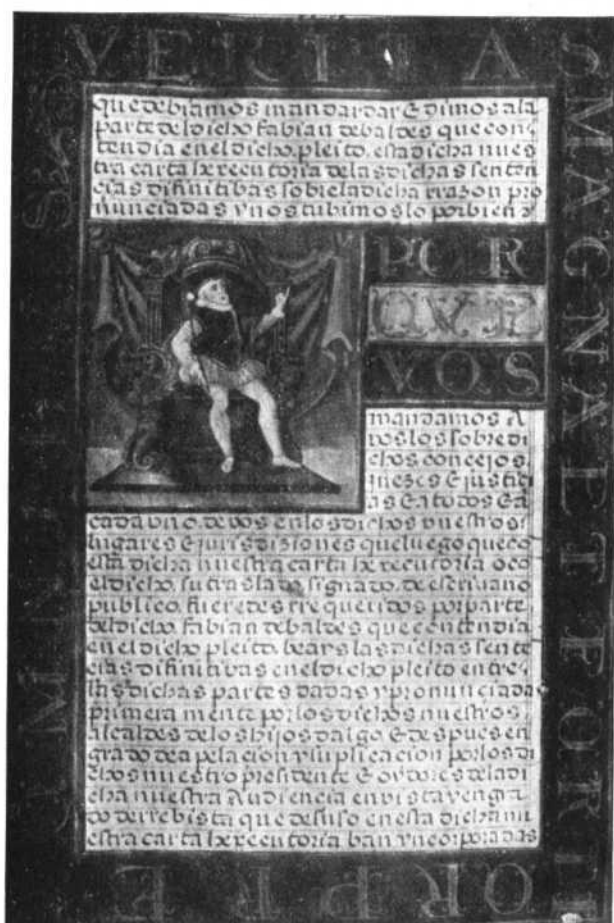 VERITAS MAGNA ET FORTI
OR PRE
que debiamos mandar dar & dimos a la
parte del dicho. fabian debaldes que con
tendia en el dicho. pleito. esta dicha nues
tra carta he xecutoria de las dichas senten
cias difinitibas sobre la dicha rrazon pro
nunciadas y nos tubimos lo por bien y
POR
QVE
VOS
mandamos A
vos los sobre di
chos concejos.
juezes & justici
as & a todos & a
cada vno. de vos en los dichos vuestros
lugares & jurisdiziones que luego que co
esta dicha nuestra carta he xecutoria o co
el dicho. su traslado. signado. de escriuano
publico. fueredes rrequeridos por parte
del dicho. fabian debaldes que contendia
en el dicho pleito. beays las dichas senten
cias difinitibas en el dicho pleito entre
las dichas partes dadas y pronunciadas
primera mente por los dichos nuestros
alcaldes de los hijos dalgo & despues en
grado de apelacion y suplicacion por los di
chos nuestro presidente & oydores de la di
cha nuestra Audiencia en vista y en gra
do de rrebista que de suso en esta dicha nu
estra carta he xecutoria ban yncorporadas